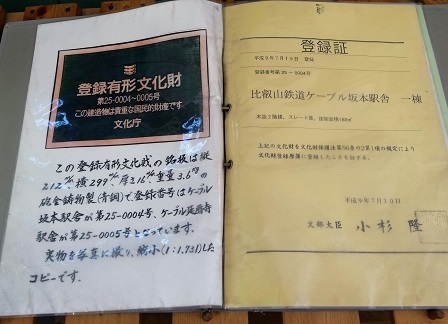 登録有形文化財
第25-0004~0005号
この建造物は貴重な国民的財産です
文化庁
この登録有形文化財の銘板は縦
212㎜横299㎜、厚さ16㎜重量3.6㎏の
砲金鋳物製(青銅)で登録番号はケーブル
坂本駅舎が第25-0004号、ケーブル延暦寺
駅舎が第25-0005号となっています。
実物を写真に撮り、縮小(1:1.731)した
コピーです。
登録証
平成9年7月15日 登録
登録番号第25-0004号
比叡山鉄道ケーブル坂本駅舎 一棟
木造2階建、スレート葺、建築面積188㎡
上記の文化財を文化財保護法第56条の2第1項の規定により
文化財登録原簿に登録したことを証する。
平成9年7月30日
文部大臣 小杉 隆